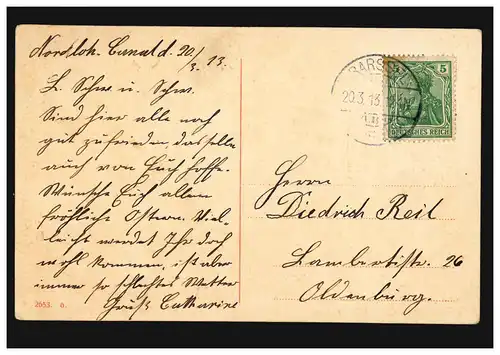 Nordloh-Canal d. 20/3. 13.
L. Schw. u. Schw.
Sind hier alle noch
gut zufrieden, dasselbe
auch von Euch hoffe.
Wünsche Euch allen
fröhliche Ostern. Viel-
leicht werdet Ihr doch
wohl kommen, ist aber
immer so schlechtes Wetter
Gruß Catharine
2653. o.
BARSSEL
20.3.13
5 5
DEUTSCHES REICH
Herrn
Diedrich Reil
Lambertistr. 26
Oldenburg.